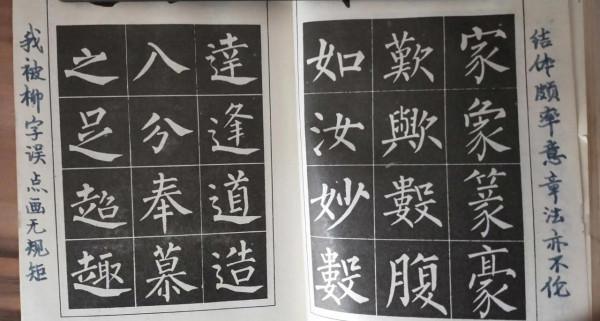 结体颇率意章法亦不伦
家象篆豪
歎歟數腹
如汝妙數
達逢道造
八分奉慕
之足超趣
我被柳字误点画无规矩